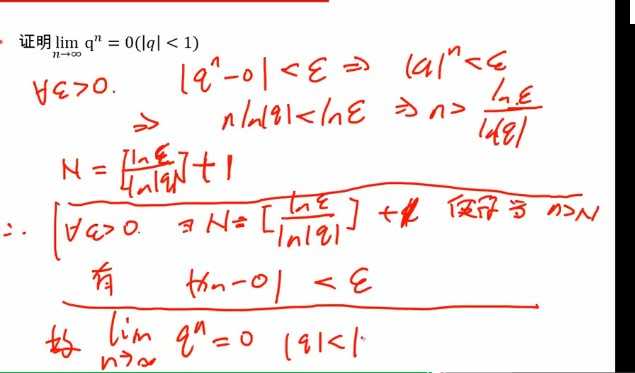 证明 lim_{n→∞} qⁿ = 0(|q| < 1)
∀ε>0. |qⁿ-0|<ε ⇒ |q|ⁿ<ε
⇒ n ln|q|<lnε ⇒ n> lnε/ln|q|
N = [lnε/ln|q|]+1
∴ ∀ε>0. ∃ N= [lnε/ln|q|] +1 使得当 n>N
有 |xn-0| < ε
故 lim_{n→∞} qⁿ=0 |q|<1